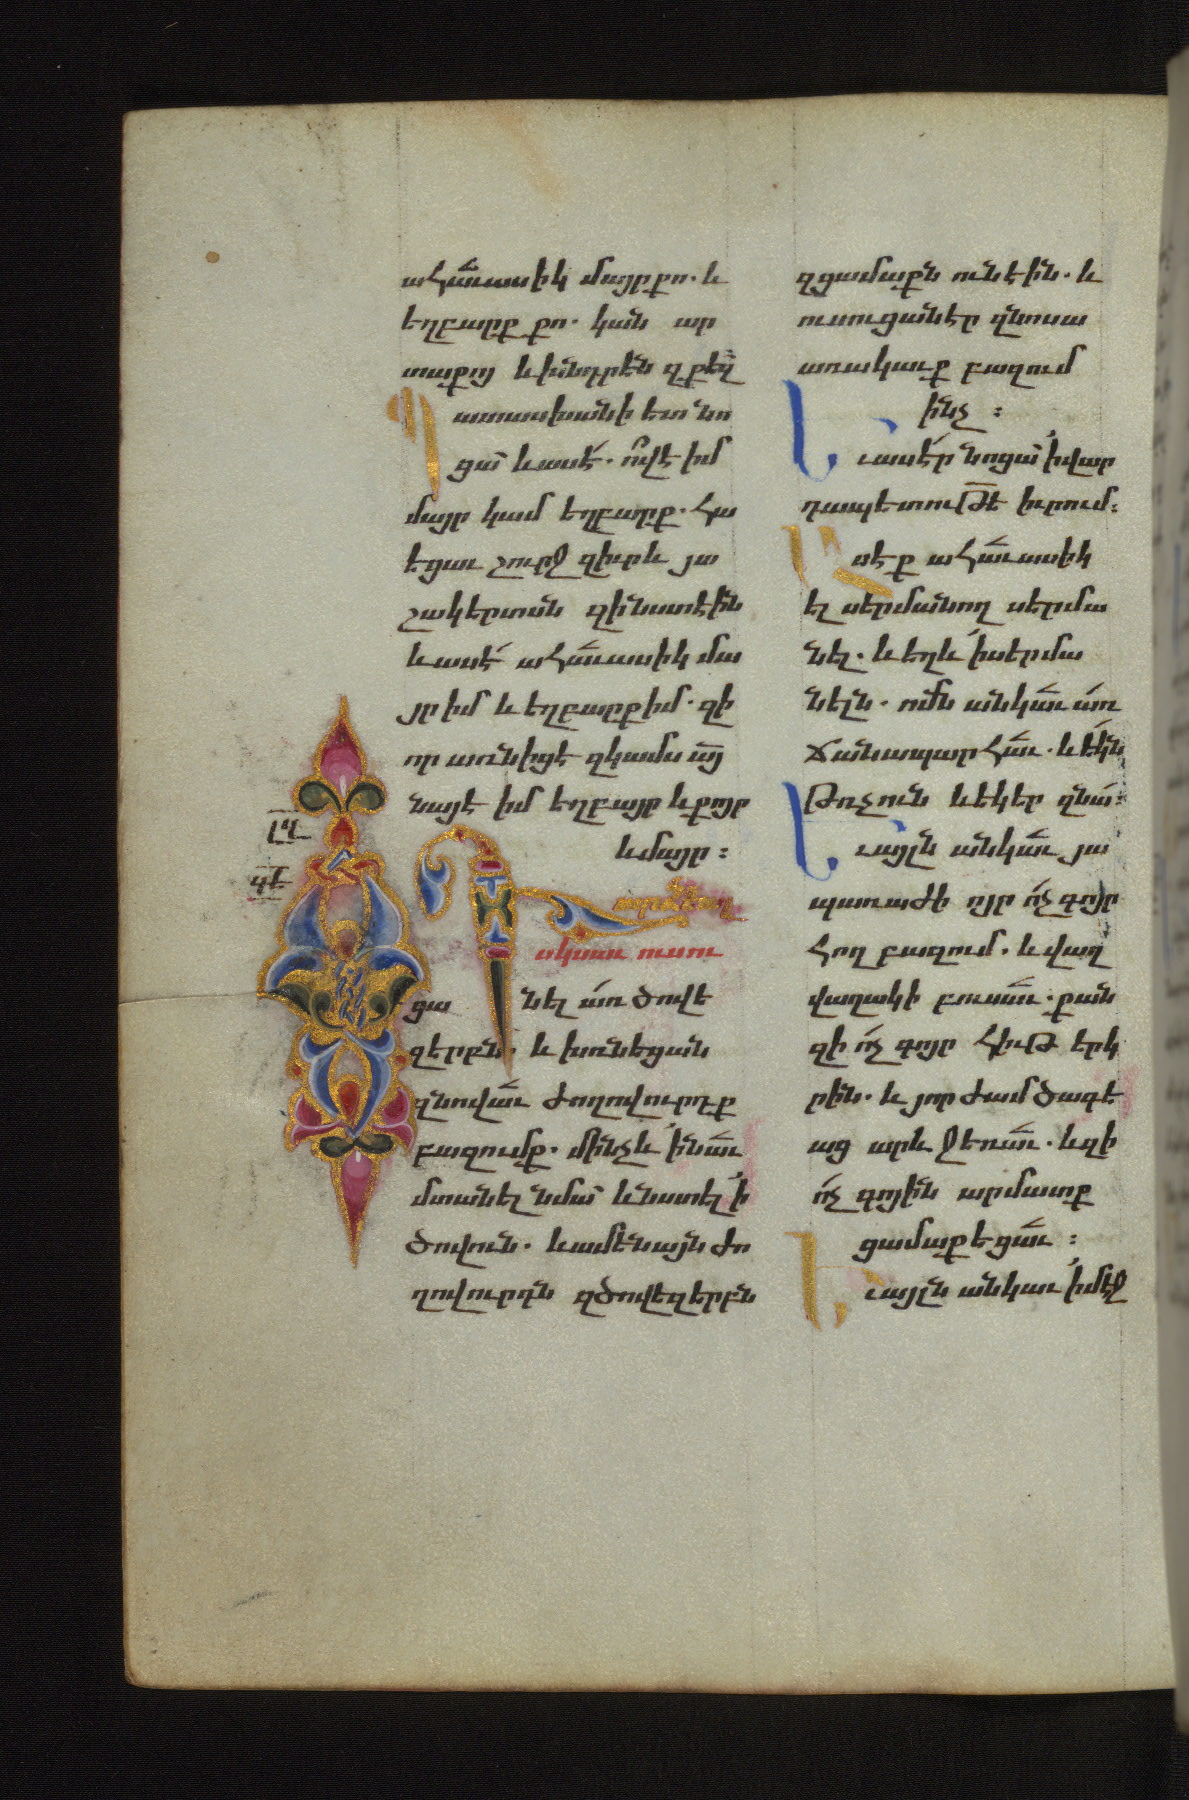 ահա́ւասիկ մայր քո. և
եղբարք քո. կան ար
տաքոյ և խնդրեն զքեզ
Պատասխանի ետ նո
ցա՛ և ասէ́. ո՞վ է իմ
մայր կամ եղբարք. հա
եցաւ շուրջ զիւրև յա
շակերտան զինստէին
և ասէ́ ահա́ւասիկ մա
յր իմ և եղբարք իմ. զի
որ առնիցէ զկամս ա՟յ
նա́յ է իմ եղբայր և քոյր
և մայր :
լ՟դ
կ՟է
Դարձեալ
սկսաւ ուսու
ցանել առ ծովե
զերբն. և խռնեցան
զնովա́ւ ժողովուրդք
բազումք. մինչև ՛ի նա́ւ
մտանել նմա՛ և նստել ՛ի
ծովուն. և ամենայն ժո
ղովուրդն զծովեզերբն
զցամաքն ունէին. և
ուսուցանէր զնոսա
առակաւք բազում
ինչ :
Եւ ասէ́ր նոցա՛ ՛ի վար
դապետութե՟ իւրում:
Լսէք ահա́ւասիկ
ել սերմանող սերմա
նել. և եղև ՛ի սերմա
նելն. ոմն անկա́ւ ա́ռ
ճանապարհա́ւ. և ե́կն
թռչուն և եկեր զնա́:
Եւ այլն անկա́ւ յա
պառաժի ոյր ո́չ գոյր
հող բազում. և վաղ
վաղակի բուսա́ւ. քան
զի ո́չ գոյր հիւթ երկ
րին. և յորժամ ծագե
աց արև ջեռա́ւ. և զի
ո́չ գոյին արմատք
ցամաքեցա́ւ :
Եւ այլն անկաւ ՛ի մէջ